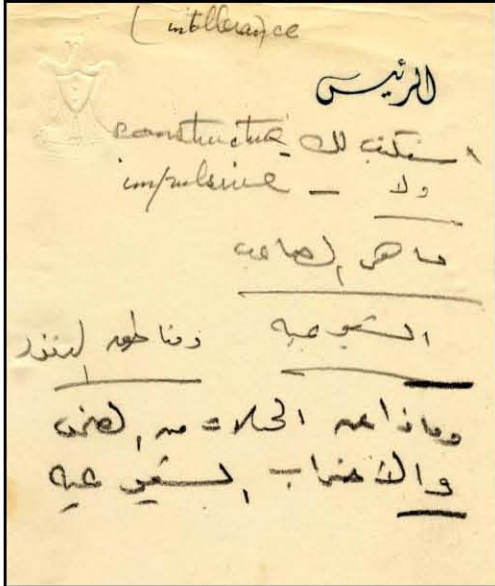 (intollerance
الرئيس
ستكتب لك constructive
ولا – impulsive
ما هى
الشيوعيه ومناطق النفوذ
وماذا عن الحملات من الصحف
والأحزاب الشيوعيه